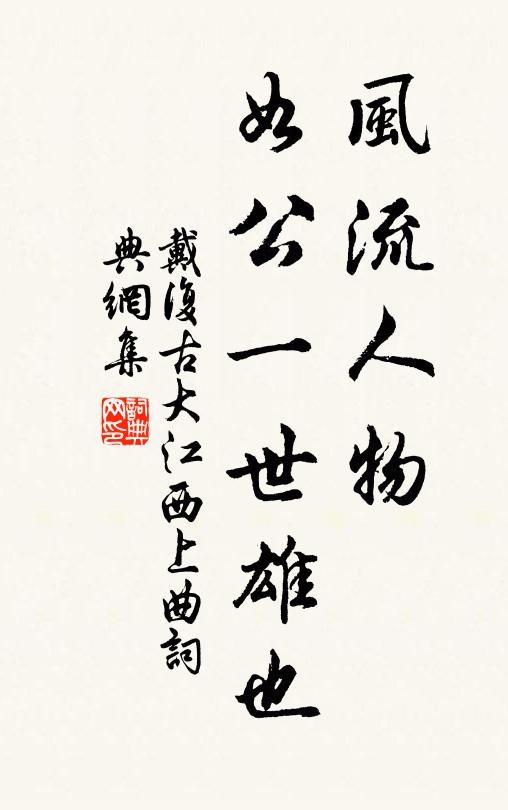 風流人物
如公一世雄也
戴復古大江西上曲詞
典網集
詞典
网印